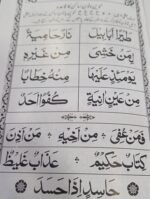 طَيْرًا اَبَابِيْلَ نَارٌ حَامِيَةٌ
لِمَنْ خَشِيَ مِنْ غَيْرِهٖ
يَوْمَئِذٍ عَلَيْهَا مِنْهُ خِطَابًا
مِنْ عَيْنٍ اٰنِيَةٍ كُفُوًا اَحَدٌ
فَمَنْ عُفِيَ مِنْ اَخِيْهِ مَنْ اَذِنَ
كِتَابٌ حَكِيْمٌ عَذَابٌ غَلِيْظٌ
حَاسِدٍ اِذَا حَسَدَ